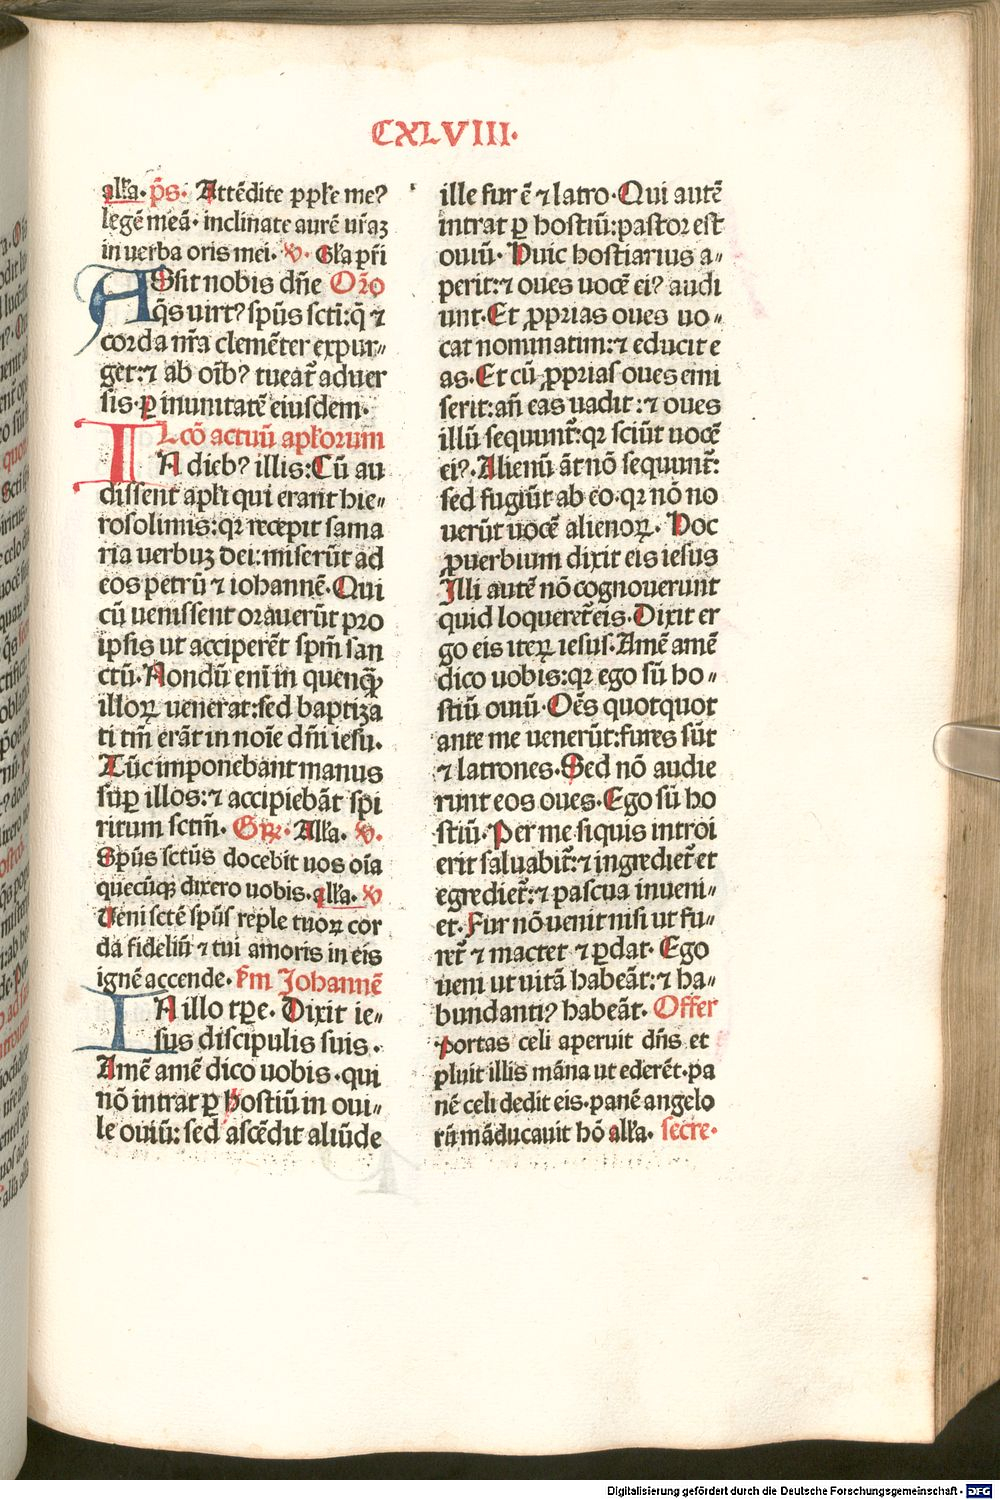 CXLVIII.
alľa. p̄s. Attēdite pple meꝰ
legē meā. inclinate aurē vr̄aꝫ
in verba oris mei. ꝟ. Gľa pr̄i
ADsit nobis dn̄e Or̄o
q̄s virtꝰ spūs scti: q̄ ⁊
corda nr̄a clemēter expur⸗
get: ⁊ ab oībꝰ tueat̄ aduer
sis. ꝑ in vnitatē eiusdem.
Lcō actuū apľorum
IN diebꝰ illis: Cū au
dissent apľi qui erant hie⸗
rosolimis: qꝛ recepit sama
ria verbuꝫ dei: miserūt ad
eos petrū ⁊ iohannē. Qui
cū venissent orauerūt pro
ipsis ut acciperēt spm̄ san
ctū. Nondū enī in quenqꝫ
illoꝝ venerat: sed baptiza
ti tm̄ erāt in noīe dn̄i iesu.
Tūc imponebant manus
suꝑ illos: ⁊ accipiebāt spi
ritum sctm̄. Alľa. ꝟ.
Spūs sctūs docebit vos oīa
quecūqꝫ dixero vobis. alľa. ꝟ
Veni sctē spūs reple tuoꝝ cor
da fideliū ⁊ tui amoris in eis
ignē accende. Fm Johannē
IN illo tꝑe. Dixit ie⸗
sus discipulis suis.
Amē amē dico vobis. qui
nō intrat ꝑ hostiū in oui⸗
le ouiū: sed ascēdit aliūde
ille fur ē ⁊ latro. Qui autē
intrat ꝑ hostiū: pastor est
ouiū. Huic hostiarius a⸗
perit: ⁊ oues vocē eiꝰ audi
unt. Et ꝓprias oues vo⸗
cat nominatim: ⁊ educit e
as. Et cū ꝓprias oues emi
serit: an̄ eas vadit: ⁊ oues
illū sequunt̄: qꝛ sciūt vocē
eiꝰ. Alienū āt nō sequunt̄:
sed fugiūt ab eo. qꝛ nō no
uerūt vocē alienoꝝ. Hoc
ꝓuerbium dixit eis iesus
Illi autē nō cognouerunt
quid loqueret̄ eis. Dixit er
go eis iteꝝ iesus. Amē amē
dico vobis: qꝛ ego sū ho⸗
stiū ouiū. Oēs quotquot
ante me venerūt: fures sūt
⁊ latrones. Sed nō audie
runt eos oues. Ego sū ho
stiū. Per me si quis introi
erit saluabit̄: ⁊ ingrediet̄ et
egrediet̄: ⁊ pascua inueni⸗
et. Fur nō venit nisi ut fu⸗
ret̄ ⁊ mactet ⁊ ꝑdat. Ego
veni ut vitā habeāt: ⁊ ha⸗
bundantiꝰ habeāt. Offer
Portas celi aperuit dn̄s et
pluit illis māna ut ederēt. pa
nē celi dedit eis. panē angelo
rū māducauit hō alľa. secre.
Digitalisierung gefördert durch die Deutsche Forschungsgemeinschaft - DFG